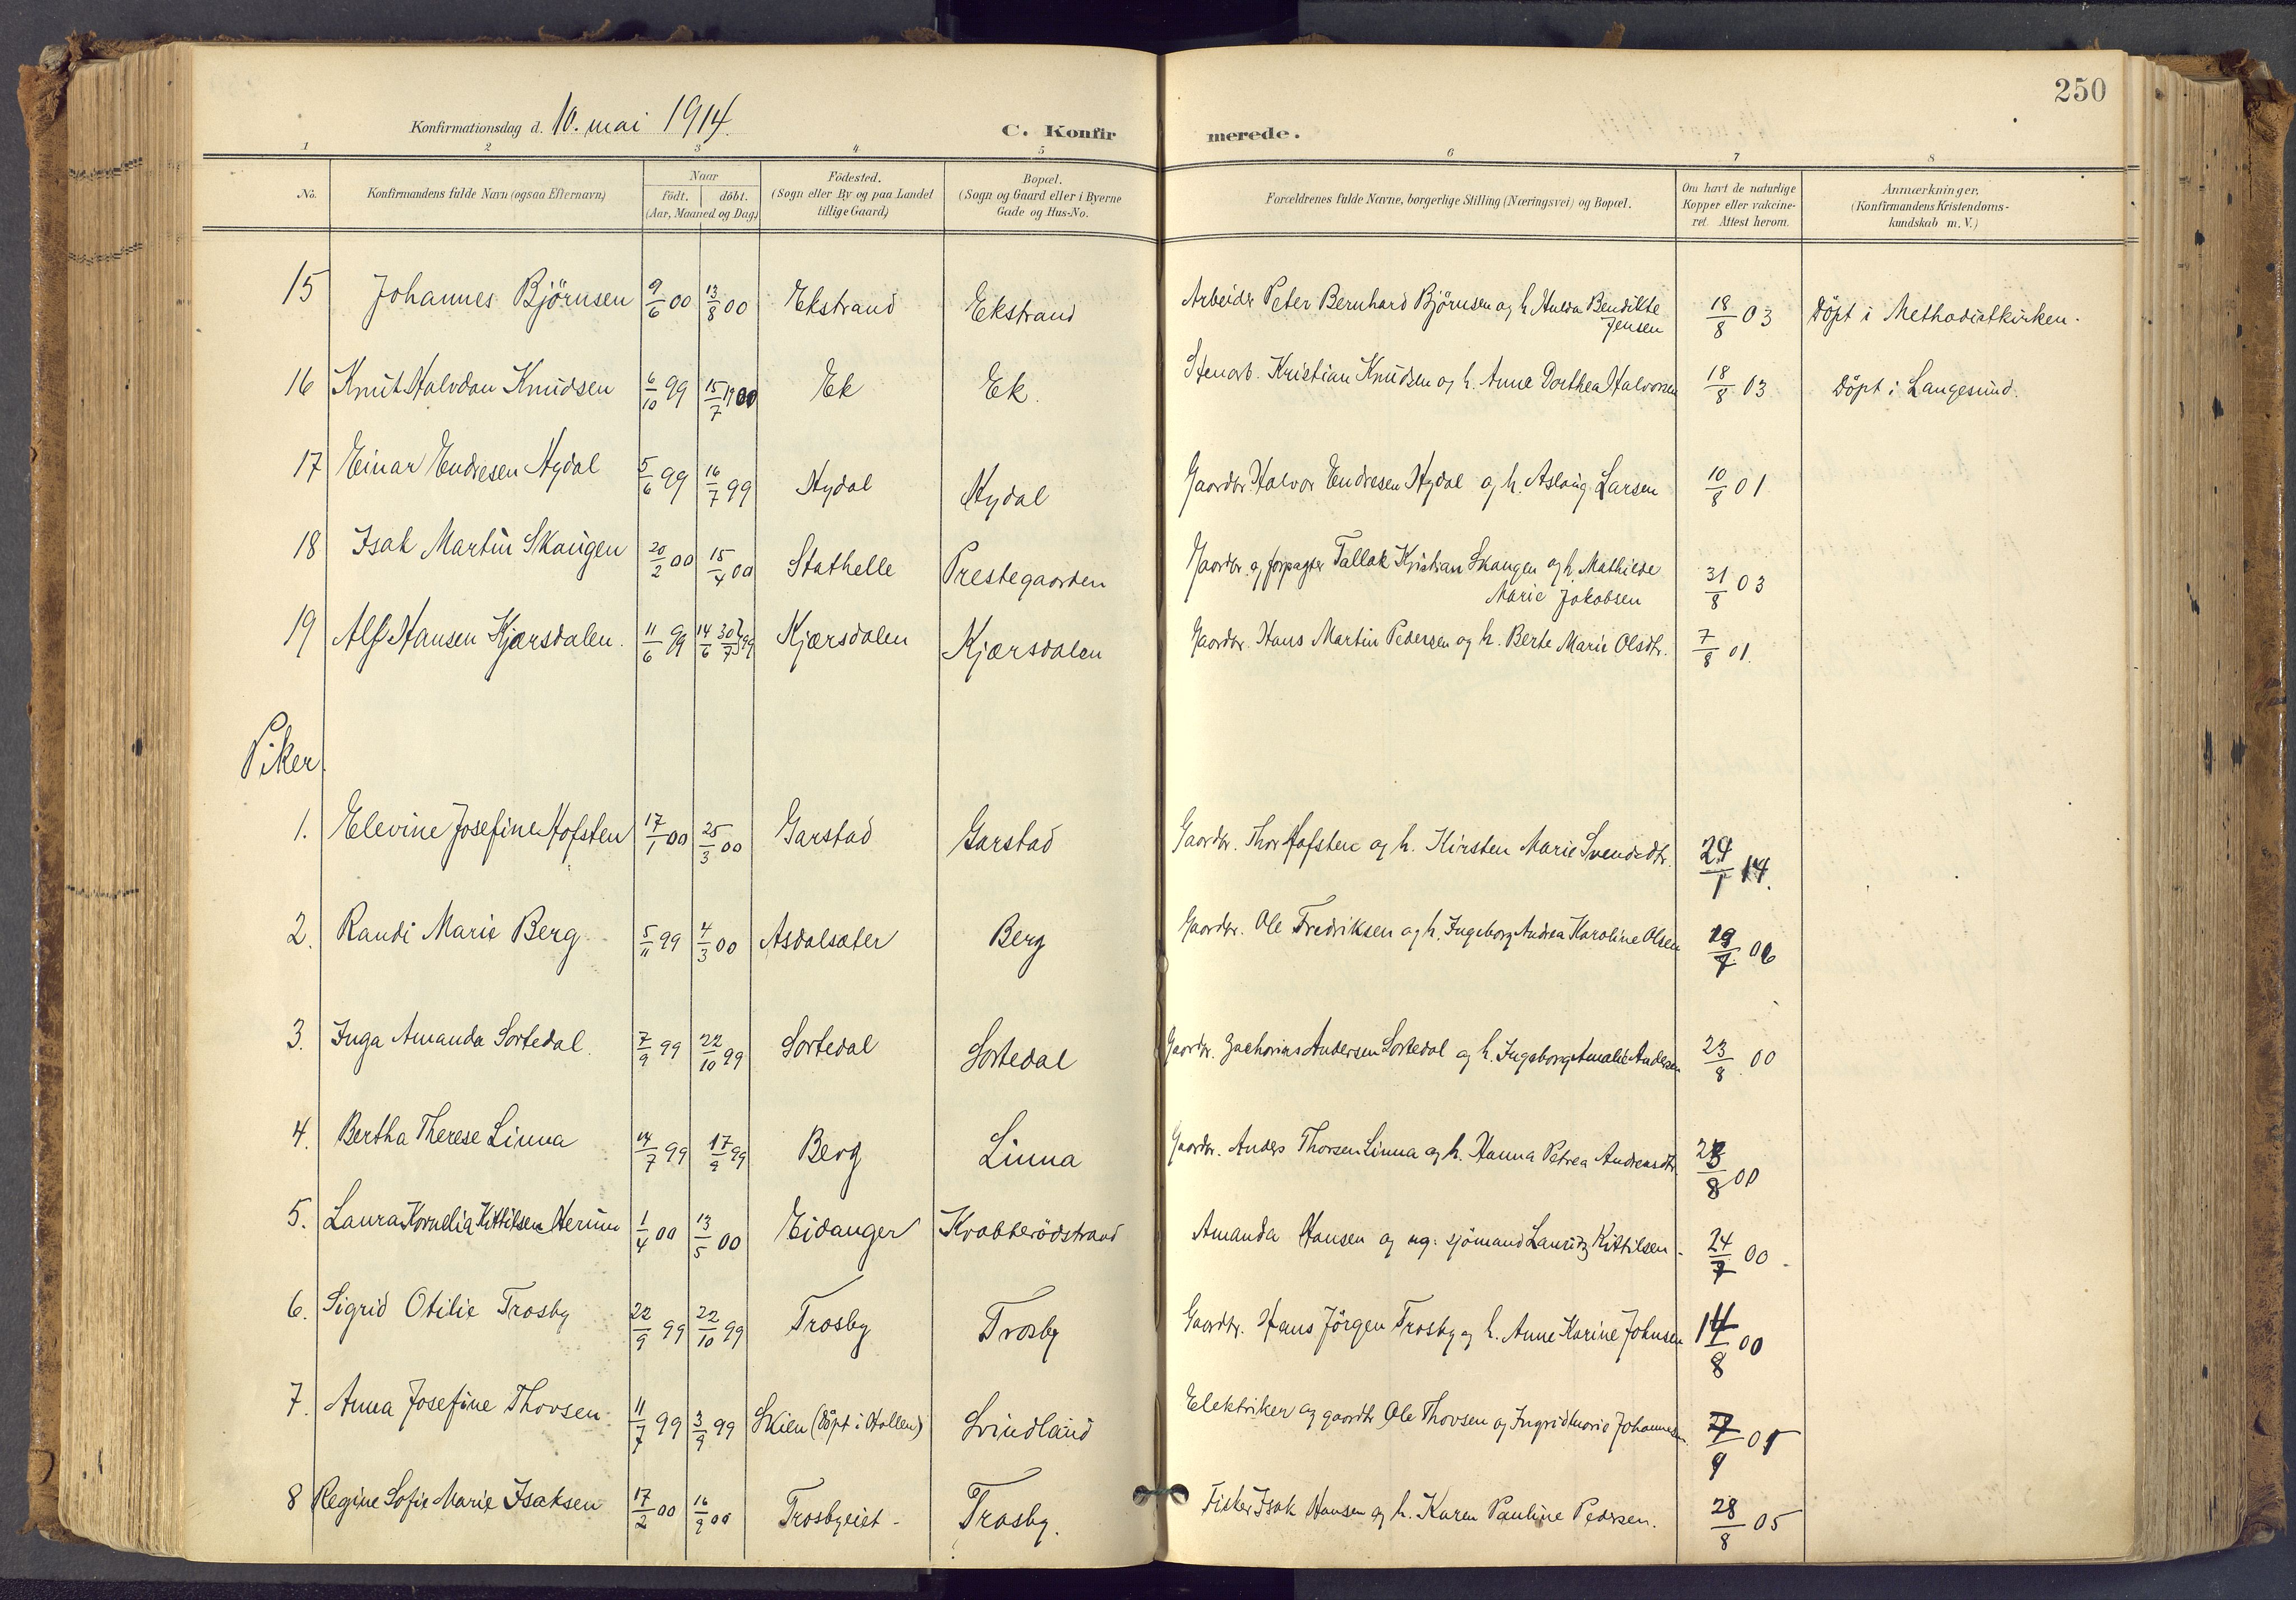 250
Konfirmationsdag d. 10. mai 1914.
C. Konfirmerede.
1 2 3 4 5 6 7 8
No. Konfirmandens fulde Navn (ogsaa Efternavn) Naar födt. döbt. (Aar, Maaned og Dag) Födested. (Sogn eller By og paa Landet tillige Gaard) Bopæl. (Sogn og Gaard eller i Byerne Gade og Hus-No. Forældrenes fulde Navne, borgerlige Stilling (Næringsvei) og Bopæl. Om havt de naturlige Kopper eller vakcineret. Attest herom. Anmærkninger. (Konfirmandens Kristendomskundskab m. V.)
15 Johannes Björnsen 9/6 00 13/8 00 Ekstrand Ekstrand Arbeider Peter Bernhard Björnsen og h. Hulda Bendikte Jensen 18/8 03 Döpt i Methodistkirken.
16 Knut Halvdan Knudsen 6/10 99 15/7 1900 Ek Ek. Stenarb. Kristian Knudsen og h. Anne Dorthea Halvorsen 18/8 03 Döpt i Langesund.
17 Einar Endresen Hydal 5/6 99 16/7 99 Hydal Hydal Gaardbr. Halvor Endresen Hydal og h. Aslaug Larsen 10/8 01
18 Isak Martin Skaugen 20/2 00 15/4 00 Stathelle Prestegaarden Gaardbr. og forpagter Tallak Kristian Skaugen og h. Mathilde Marie Jakobsen 31/8 03
19 Alf Hansen Kjærsdalen. 11/6 99 14/6 30/7 99 Kjærsdalen Kjærsdalen Gaardbr. Hans Martin Pedersen og h. Berte Marie Olsdtr. 7/8 01.
Piker.
1. Elevine Josefine Hofsten 17/1 00 25/3 00 Garstad Garstad Gaardbr. Thor Hafsten og h. Kirsten Marie Svendsdtr. 24/1 14.
2. Randi Marie Berg 5/11 99 4/3 00 Asdalsæter Berg Gaardbr. Ole Fredriksen og h. Ingeborg Andrea Karoline Olsen 06
3. Inga Amanda Sortedal. 7/9 99 22/10 99 Sortedal Sortedal Gaardbr. Zacharias Andersen Sortedal og h. Ingeborg Amalie Andersen 23/8 00
4. Bertha Therese Linna 14/7 99 17/9 99 Berg Linna Gaardbr. Anders Thorsen Linna og h. Hanna Petrea Andreasdtr. 23/8 00
5. Laura Kornelia Kittilsen Herum 1/4 00 13/5 00 Eidanger Krabberödstrand Amanda Hansen og ug: sjömand Lauritz Kittilsen - 24/7 00 -
6. Sigrid Otilie Trosby 22/9 99 22/10 99 Trosby Trosby Gaardbr. Hans Jörgen Trosby og h. Anne Karine Johnsen 14/8 00
7. Anna Josefine Thorsen. 11/7 99 3/9 99 Skien (Döpt i Hollen) Svindland Elektriker og gaardbr Ole Thorsen og Ingrid marie Johannesen
8 Regine Sofie Marie Isaksen 17/2 00 16/9 00 Trosbyeiet - Trosby. Fisker Isak Hansen og h. Karen Pauline Pedersen. 28/8 05